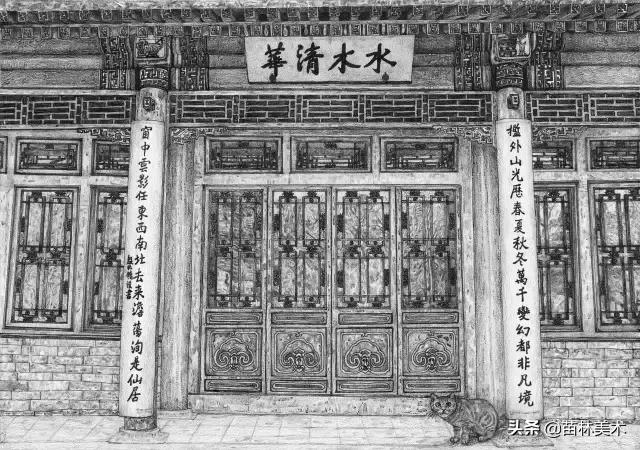 水木清華
檻外山光歷春夏秋冬萬千變幻都非凡境
窗中雲影任東西南北去來澹蕩洵是仙居
头条 @苗林美术